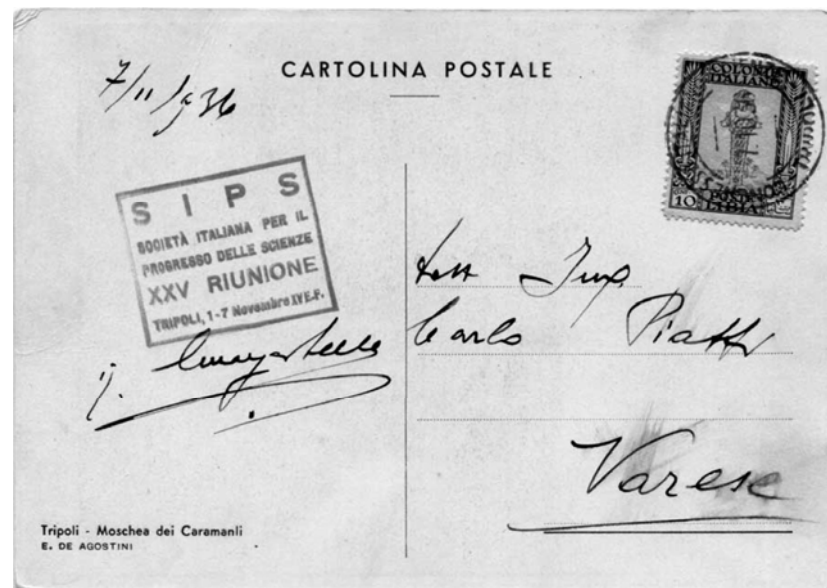 CARTOLINA POSTALE
7/11/936
COLONIE
ITALIANE
POSTE
10 LIBIA
S I P S
SOCIETÀ ITALIANA PER IL
PROGRESSO DELLE SCIENZE
XXV RIUNIONE
TRIPOLI, 1-7 Novembre XV E.F.
Carlo Piatti
Varese
Tripoli - Moschea dei Caramanli
E. DE AGOSTINI